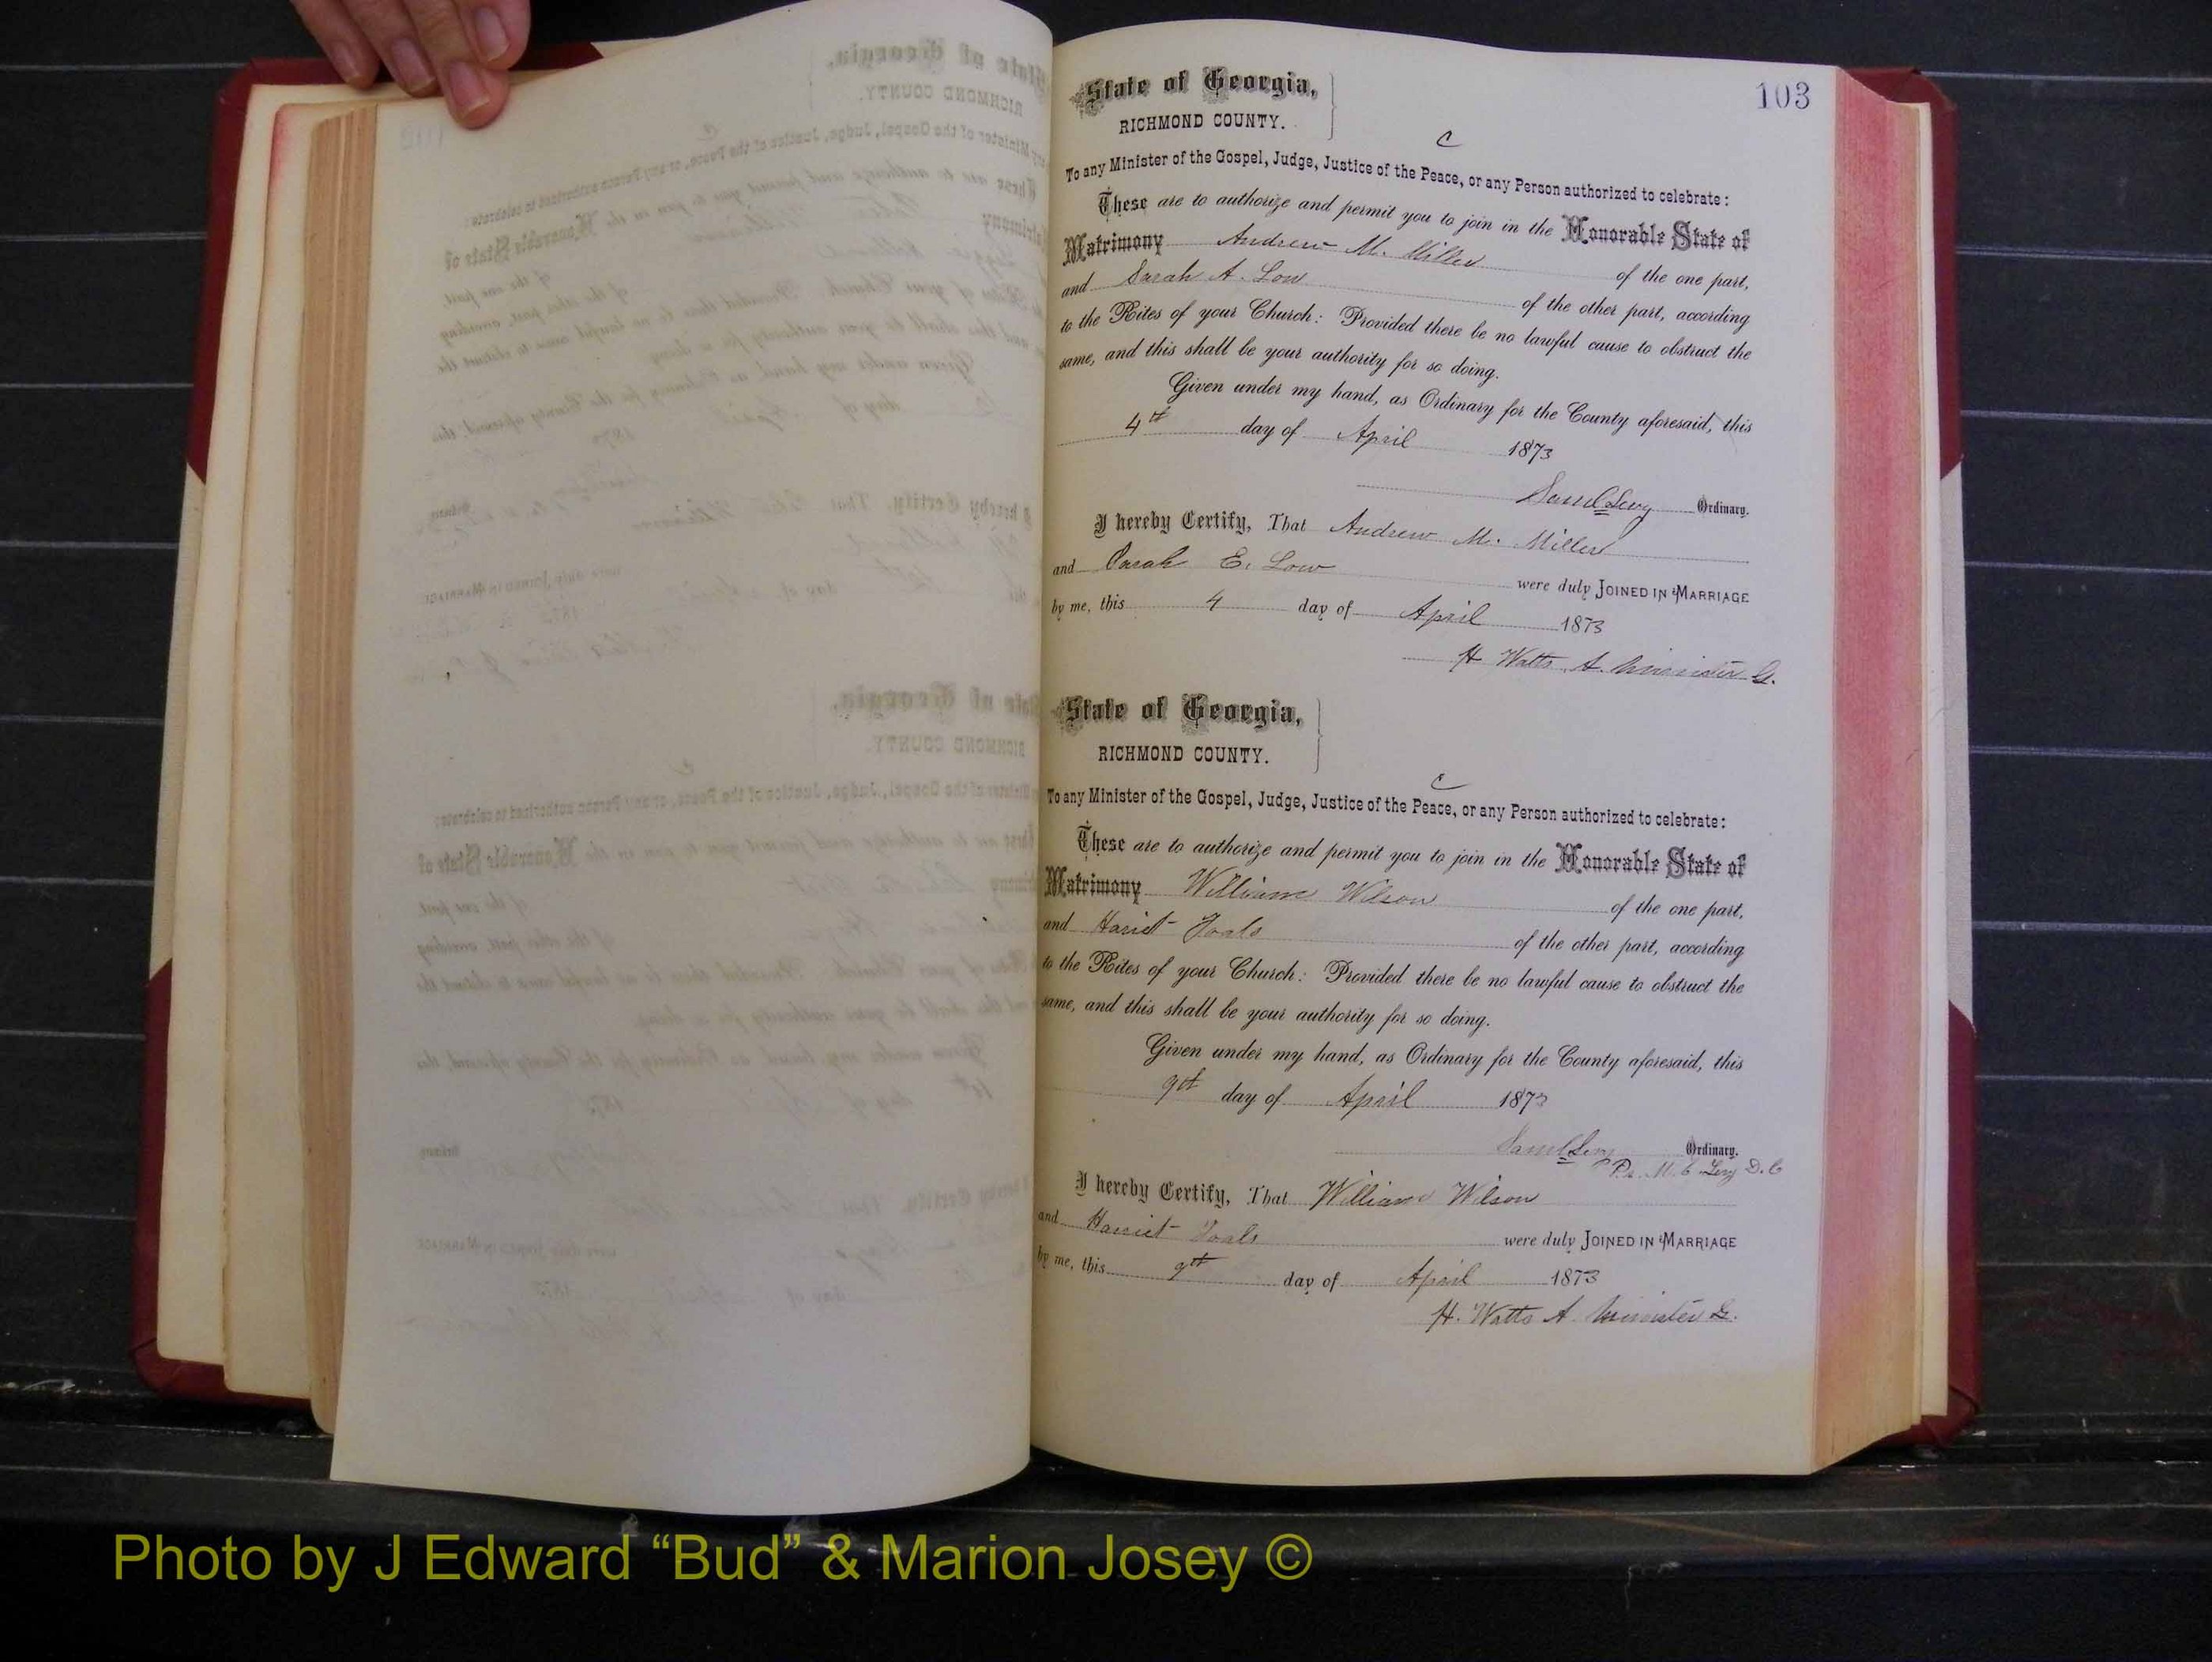 103
State of Georgia,
RICHMOND COUNTY.
C
To any Minister of the Gospel, Judge, Justice of the Peace, or any Person authorized to celebrate:
These are to authorize and permit you to join in the Honorable State of
Matrimony Andrew M. Miller of the one part,
and Sarah A. Low of the other part, according
to the Rites of your Church: Provided there be no lawful cause to obstruct the
same, and this shall be your authority for so doing.
Given under my hand, as Ordinary for the County aforesaid, this
4th day of April 1873
Saml Levy Ordinary.
I hereby Certify, That Andrew M. Miller
and Sarah E. Low were duly JOINED IN MARRIAGE
by me, this 4 day of April 1873
H Watts A. Minister G.
State of Georgia,
RICHMOND COUNTY.
C
To any Minister of the Gospel, Judge, Justice of the Peace, or any Person authorized to celebrate:
These are to authorize and permit you to join in the Honorable State of
Matrimony William Wilson of the one part,
and Hariet of the other part, according
to the Rites of your Church: Provided there be no lawful cause to obstruct the
same, and this shall be your authority for so doing.
Given under my hand, as Ordinary for the County aforesaid, this
9th day of April 1873
Saml Levy Ordinary.
Levy D. C
I hereby Certify, That William Wilson
and Harriet were duly JOINED IN MARRIAGE
by me, this 9th day of April 1873
H. Watts A. Minister G.
Photo by J Edward “Bud” & Marion Josey ©